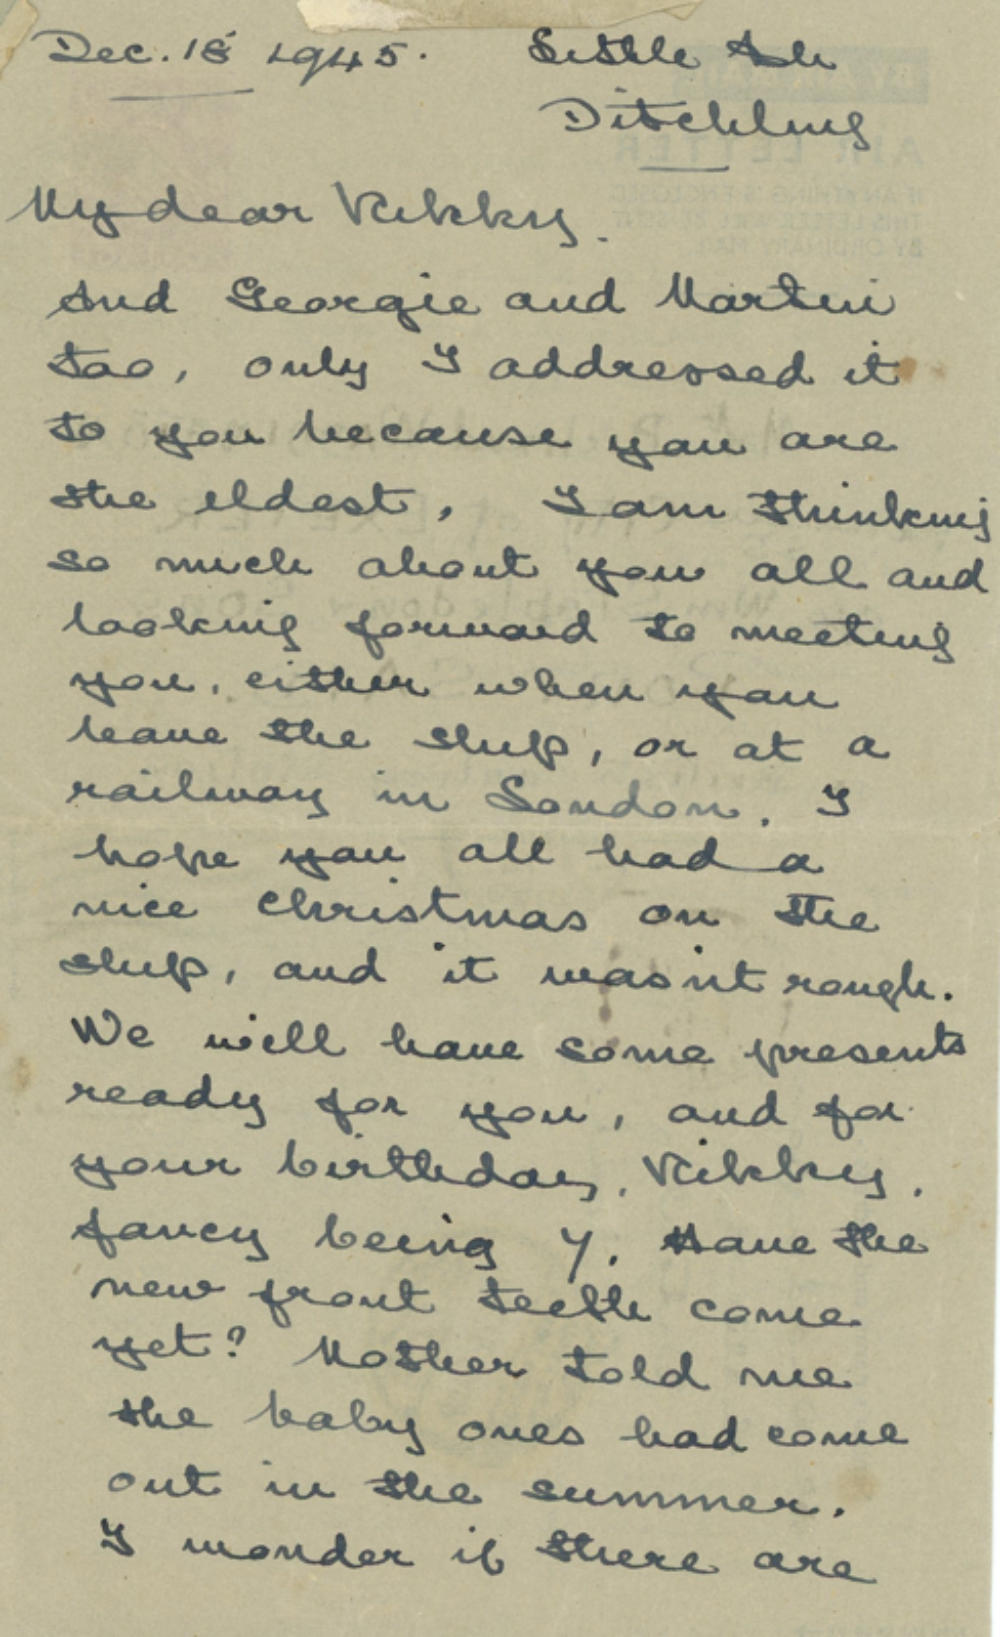 Dec. 18 1945. Little Ash
Ditchling
My dear Vikky.
And Georgie and Martin
too, only I addressed it
to you because you are
the eldest, I am thinking
so much about you all and
looking forward to meeting
you, either when you
leave the ship, or at a
railway in London. I
hope you all had a
nice Christmas on the
ship, and it wasn't rough.
We will have some presents
ready for you, and for
your birthday, Vikky,
fancy being 7. Have the
new front teeth come
yet? Mother told me
the baby ones had come
out in the summer.
I wonder if there are
AIR LETTER
IF ANYTHING IS ENCLOSED
THIS LETTER WILL BE SENT
BY ORDINARY MAIL